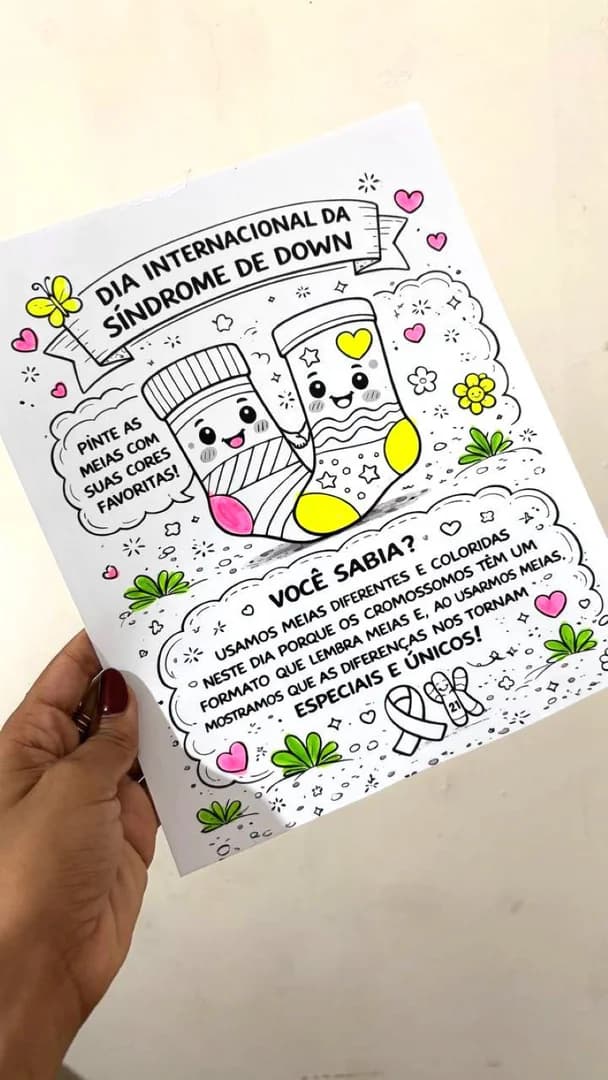 DIA INTERNACIONAL DA
SÍNDROME DE DOWN
PINTE AS
MEIAS COM
SUAS CORES
FAVORITAS!
VOCÊ SABIA?
USAMOS MEIAS DIFERENTES E COLORIDAS
NESTE DIA PORQUE OS CROMOSSOMOS TÊM UM
FORMATO QUE LEMBRA MEIAS E, AO USARMOS MEIAS,
MOSTRAMOS QUE AS DIFERENÇAS NOS TORNAM
ESPECIAIS E ÚNICOS!
21